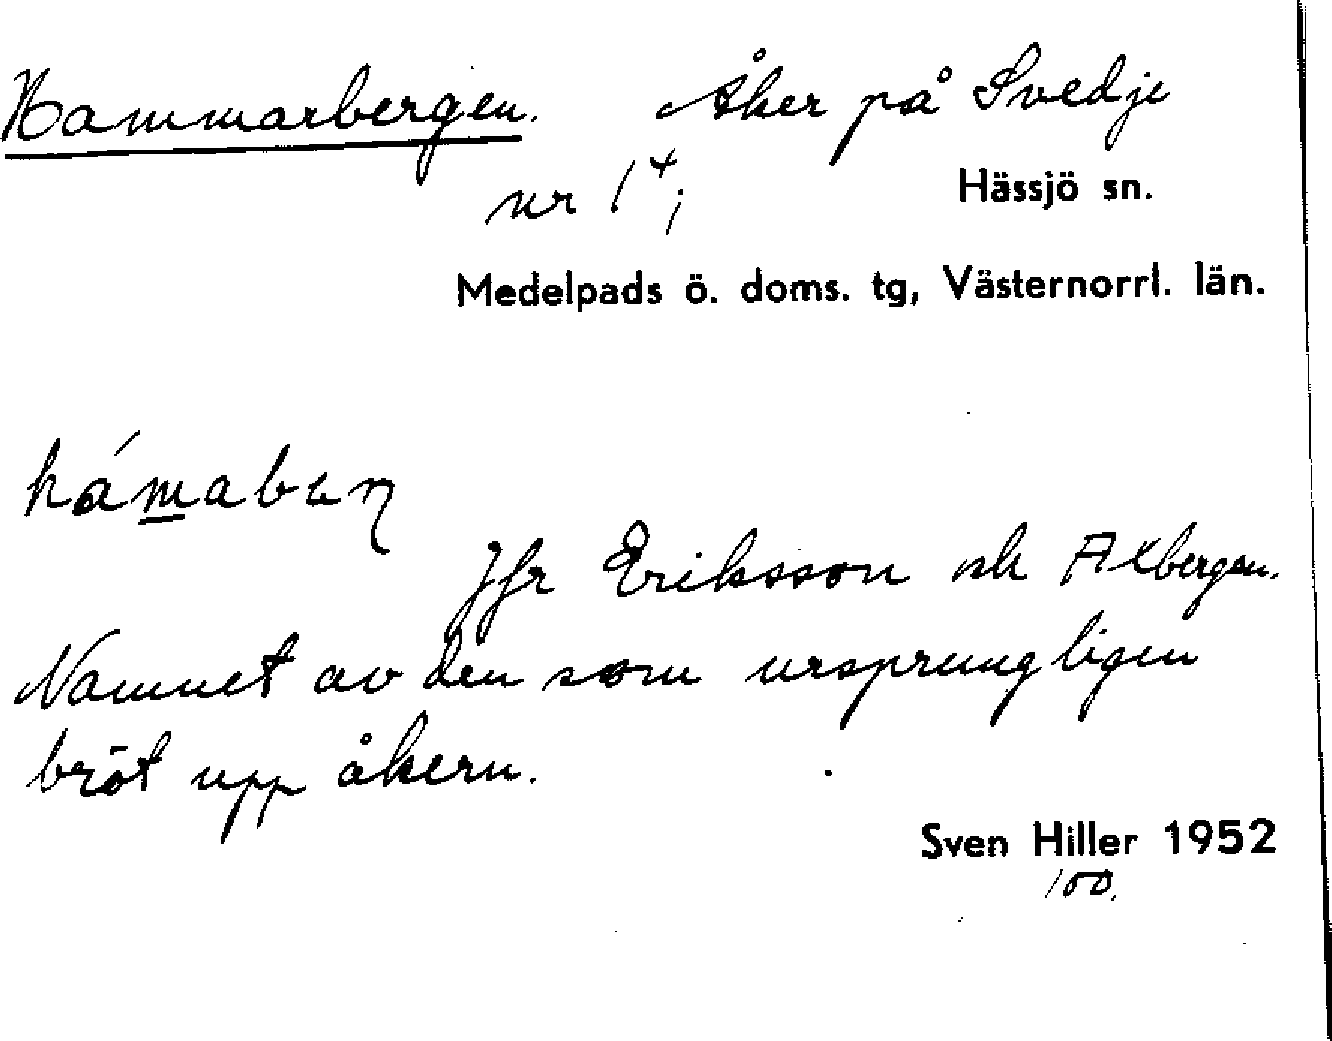 Hammarbergen. Åker på Svedje
nr 1⁴; Hässjö sn.
Medelpads ö. doms. tg, Västernorrl. län.
Jfr Eriksson och Axbergen.
Namnet av den som ursprungligen
bröt upp åkern.
Sven Hiller 1952
100.